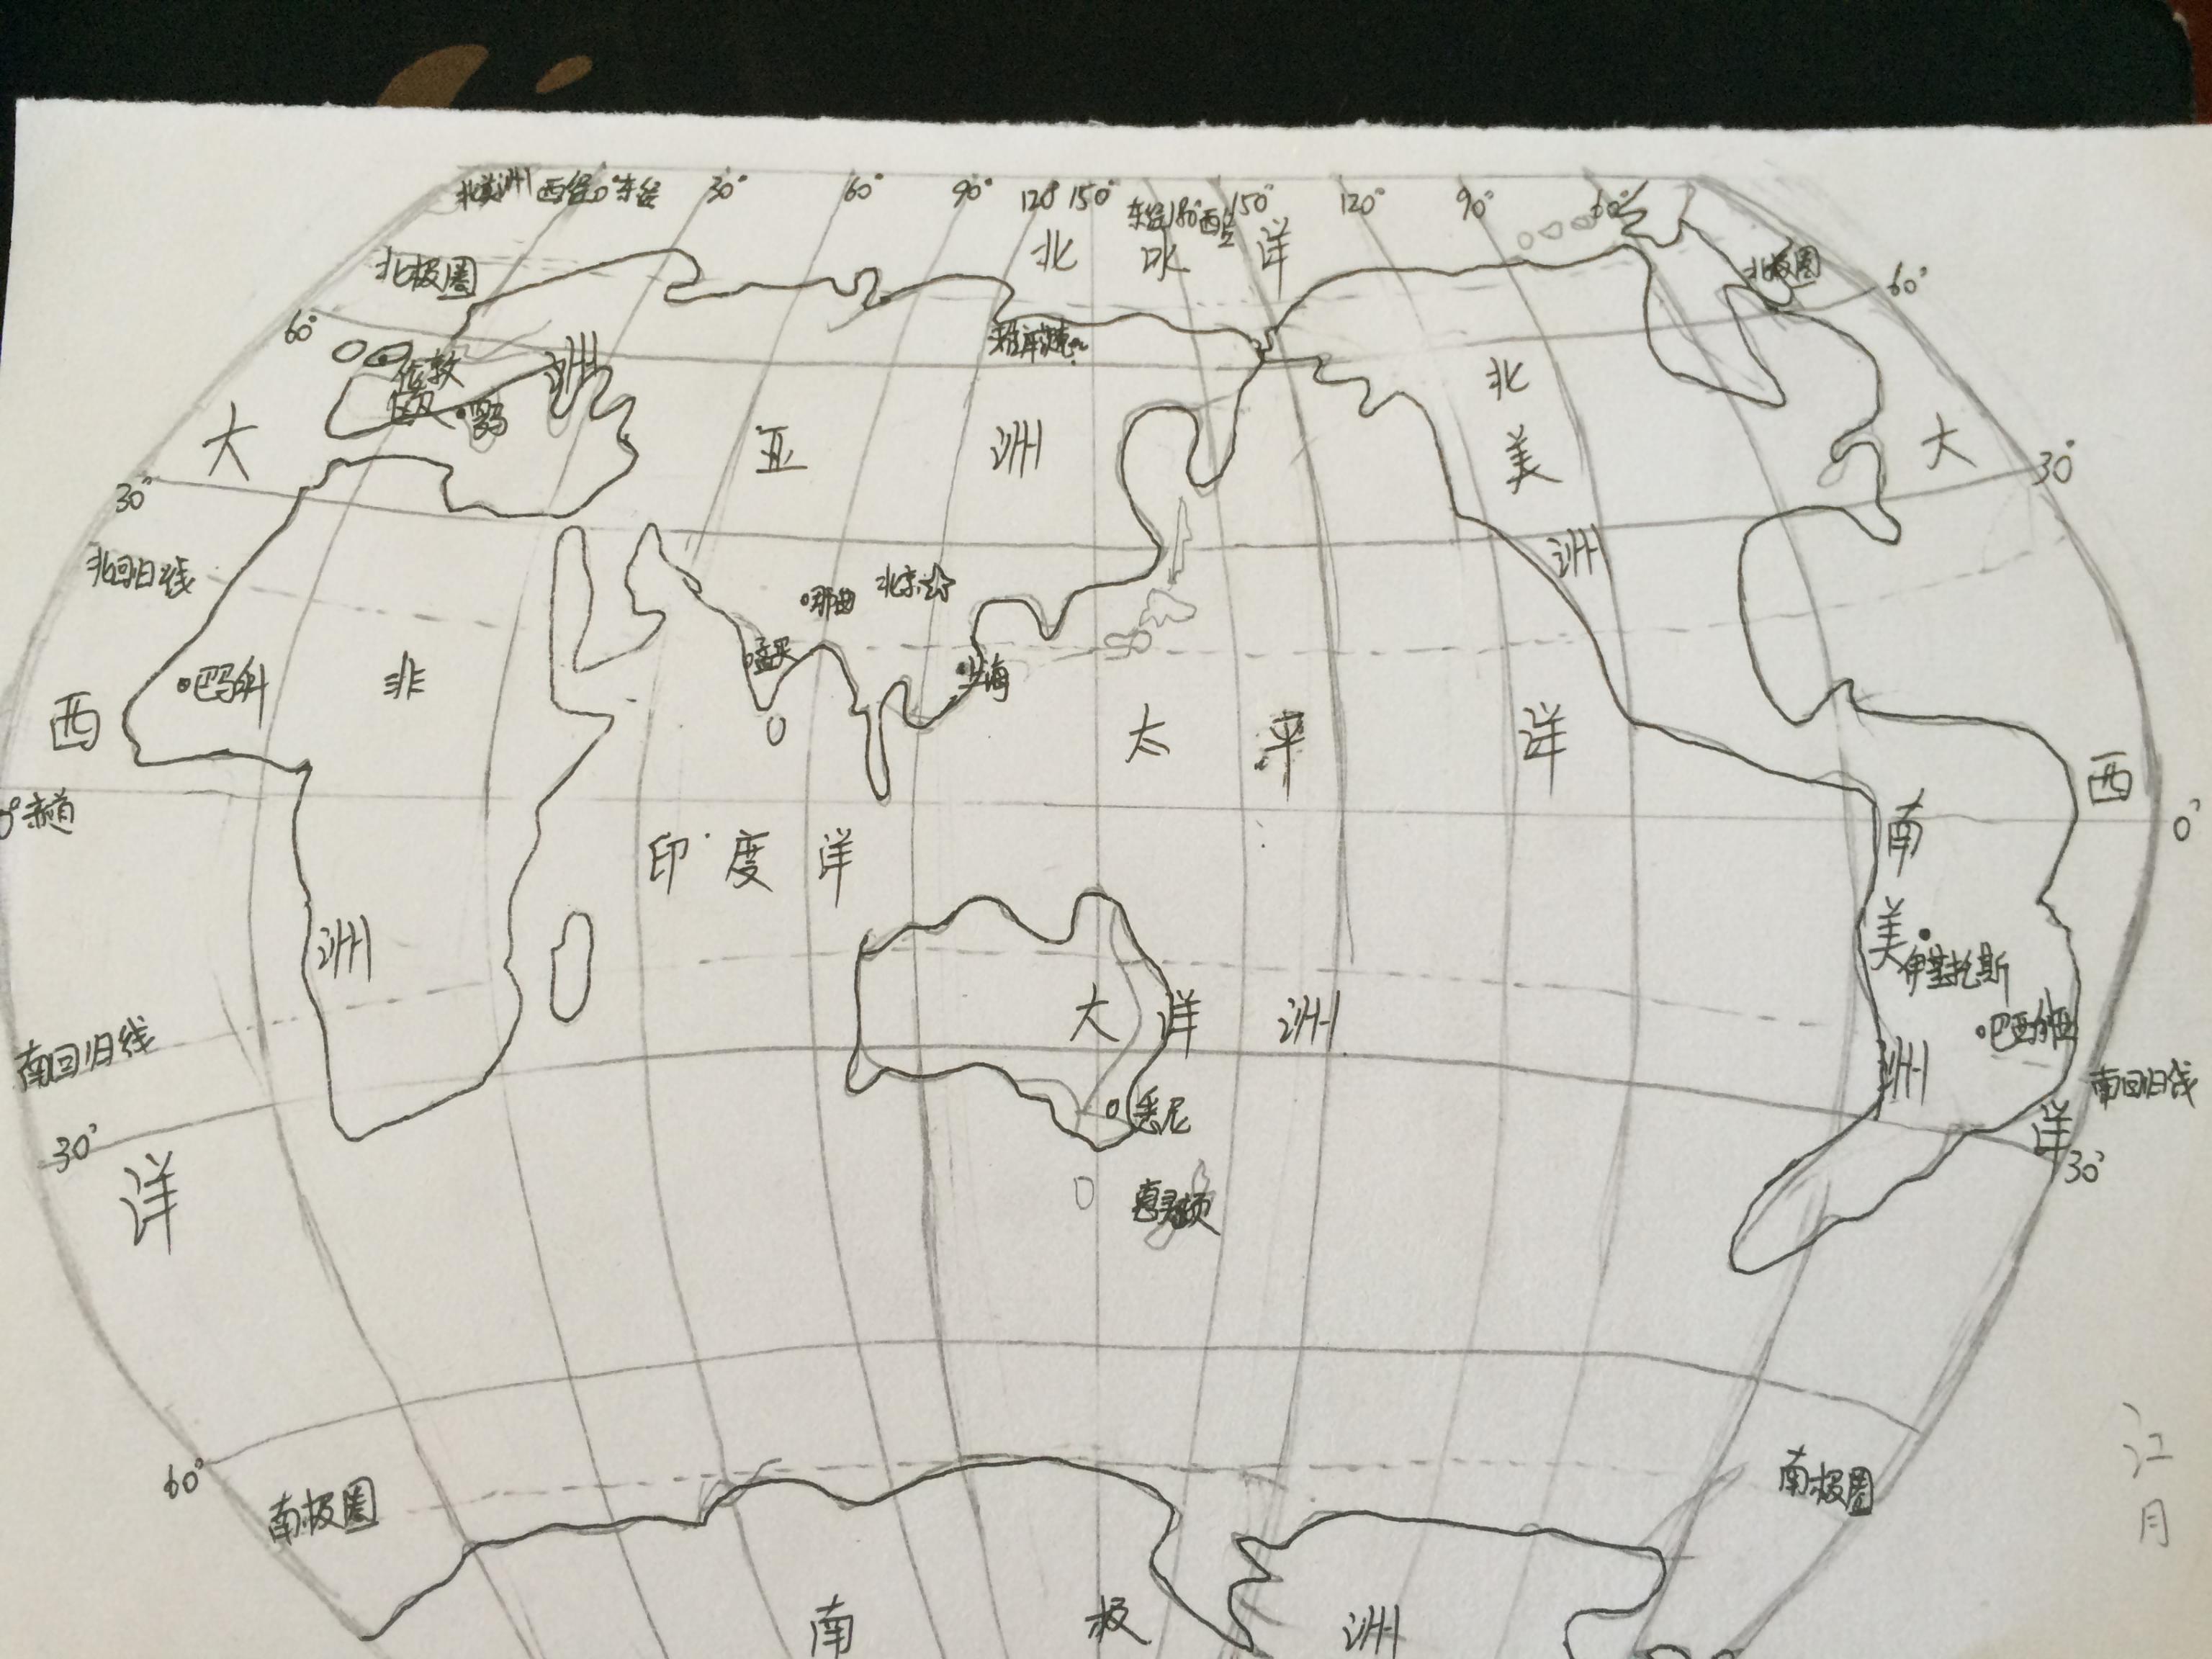 北美洲 西经0°东经 30° 60° 90° 120° 150° 东经180°西经 150° 120° 90° 60°
北 冰 洋
北极圈
北极圈
60°
60°
雅库茨克
伦敦
洲
巴黎
罗马
大
亚 洲
北
美
洲
大
30°
30°
北回归线
那曲 北京
孟买
上海
巴马科
非
洲
西
太 平 洋
西
0°赤道
0°
印度洋
南
美
洲
伊基托斯
巴西利亚
大 洋 洲
南回归线
南回归线
悉尼
洋
30°
30°
洋
惠灵顿
60°
南极圈
南极圈
南 极 洲
江
月